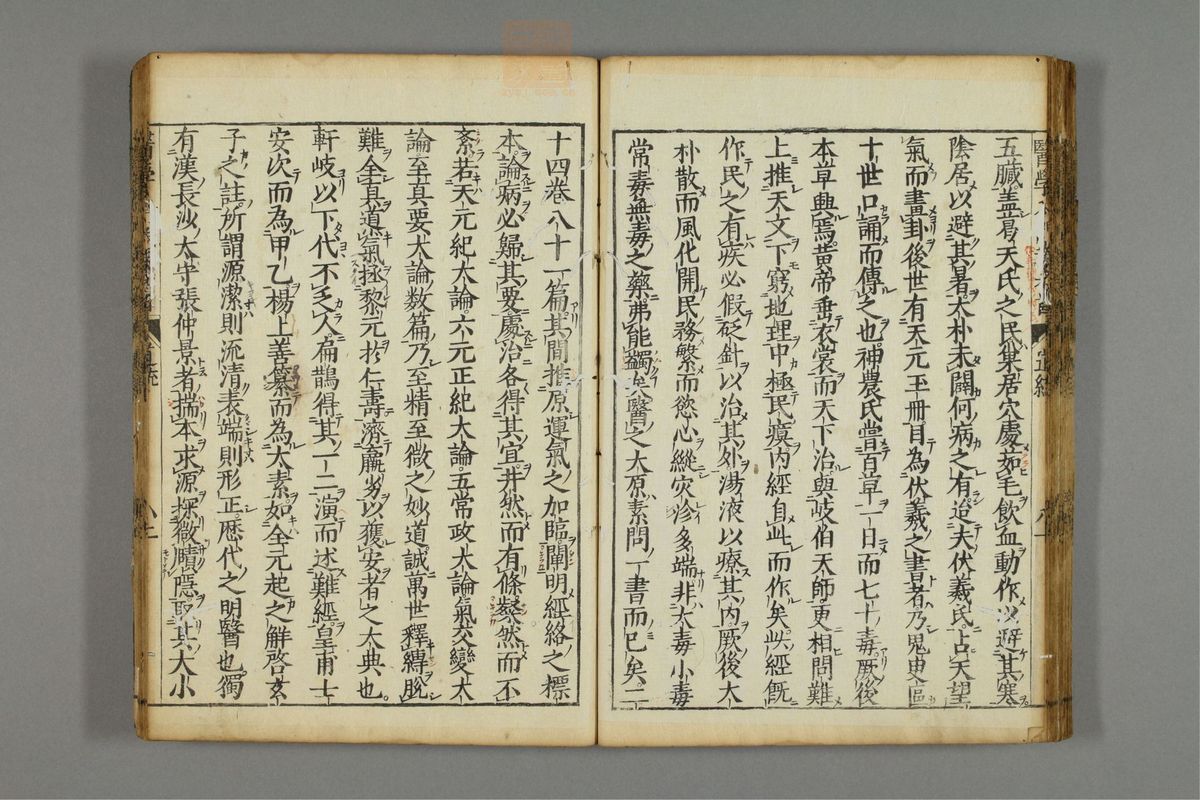 五臟蓋爲天氏之民巢居穴處茹毛飲血動作以避其寒
陰居以避其暑太朴未闢何病之有迨夫伏羲氏占天望
氣而畫卦後世有天元玉冊目為伏羲之書者乃鬼臾區
十世口誦而傳之也神農氏嘗百草一日而七十毒厥後
本草興焉黃帝垂衣裳而天下治與岐伯天師更相問難
上推天文下窮地理中極民瘼内經自此而作矣此經旣
作民之有疾必假砭針以治其外湯液以療其内厥後大
朴散而風化開民務繁而慾心縱灾沴多端非大毒小毒
常毒無毒之藥弗能蠲矣醫之大原素問一書而已矣二
十四巻八十一篇其間推原運氣之加臨闡明經絡之標
本論病必歸其要處治各得其宜井然而有條粲然而不
紊若天元紀大論六元正紀大論五常政大論氣交變大
論至真要大論数篇乃至精至微之妙道誠萬世釋縛脫
難全真道氣拯黎元於仁壽濟羸劣以獲安者之大典也
軒岐以下代不乏人扁鵲得其一二演而述難經皇甫士
安次而為甲乙楊上善纂而為太素如全元起之解啓玄
子之註所謂源潔則流清表端則形正歷代之明醫也獨
有漢長沙太守張仲景者揣本求源探微賾隱取其大小